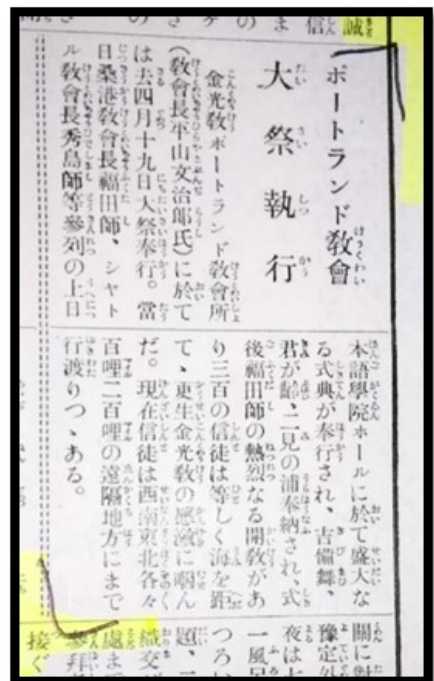 誠
信
ま
の
ポートランド敎會
大祭執行
金光敎ポートランド敎會所
(敎會長平山文治郎氏)に於て
は去四月十九日大祭奉行。當
日桑港敎會長福田師、シャト
ル敎會長秀島師等參列の上日
本語學院ホールに於て盛大な
る式典が奉行され、吉備舞、
君が齢、二見の浦奉納され、式
後福田師の熱烈なる開敎があ
り三百の信徒は等しく海を距
て、更生金光敎の感激に咽ん
だ。現在信徒は西南東北各々
百哩二百哩の遠隔地方にまで
行渡りつゝある。
關に對
豫定外
夜は七
一風呂
つろい
題、二
織交
處ま
參拜
接ぐ